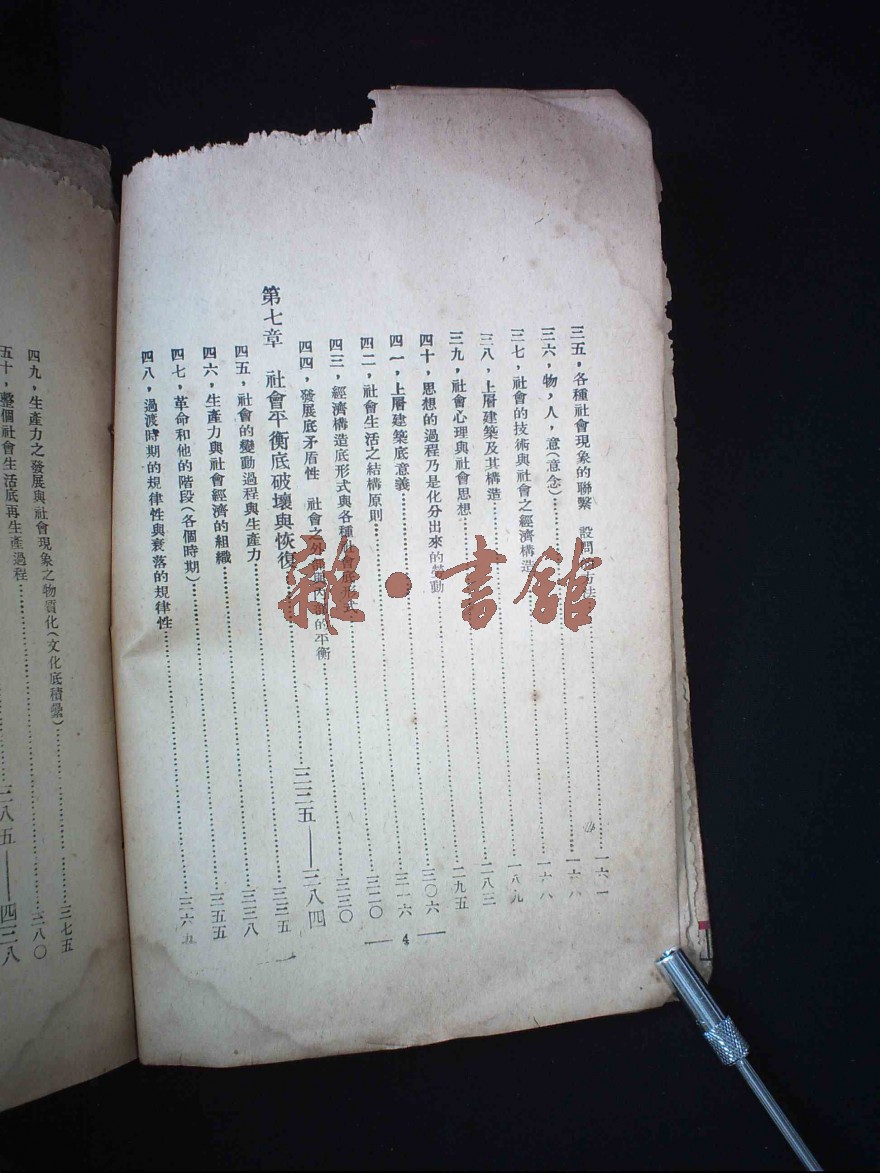 三五，各種社會現象的聯繫　設問的方法……一六一
三六，物，人，意(意念)……一六六
三七，社會的技術與社會之經濟構造……一六八
三八，上層建築及其構造……一八九
三九，社會心理與社會思想……二八三
四十，思想的過程乃是化分出來的勞動……二九五
四一，上層建築底意義……三〇六
四二，社會生活之結構原則……三一六
四三，經濟構造底形式與各種社會底形式……三二〇
四四，發展底矛盾性　社會之外部與內部的平衡……三三〇
第七章　社會平衡底破壞與恢復……三三五——三八四
四五，社會的變動過程與生產力……三三五
四六，生產力與社會經濟的組織……三三八
四七，革命和他的階段(各個時期)……三五五
四八，過渡時期的規律性與衰落的規律性……三六五
— 4 —
四九，生產力之發展與社會現象之物質化(文化底積纍)……三七五
五十，整個社會生活底再生產過程……三八〇
三八五——四三八
雜·書館